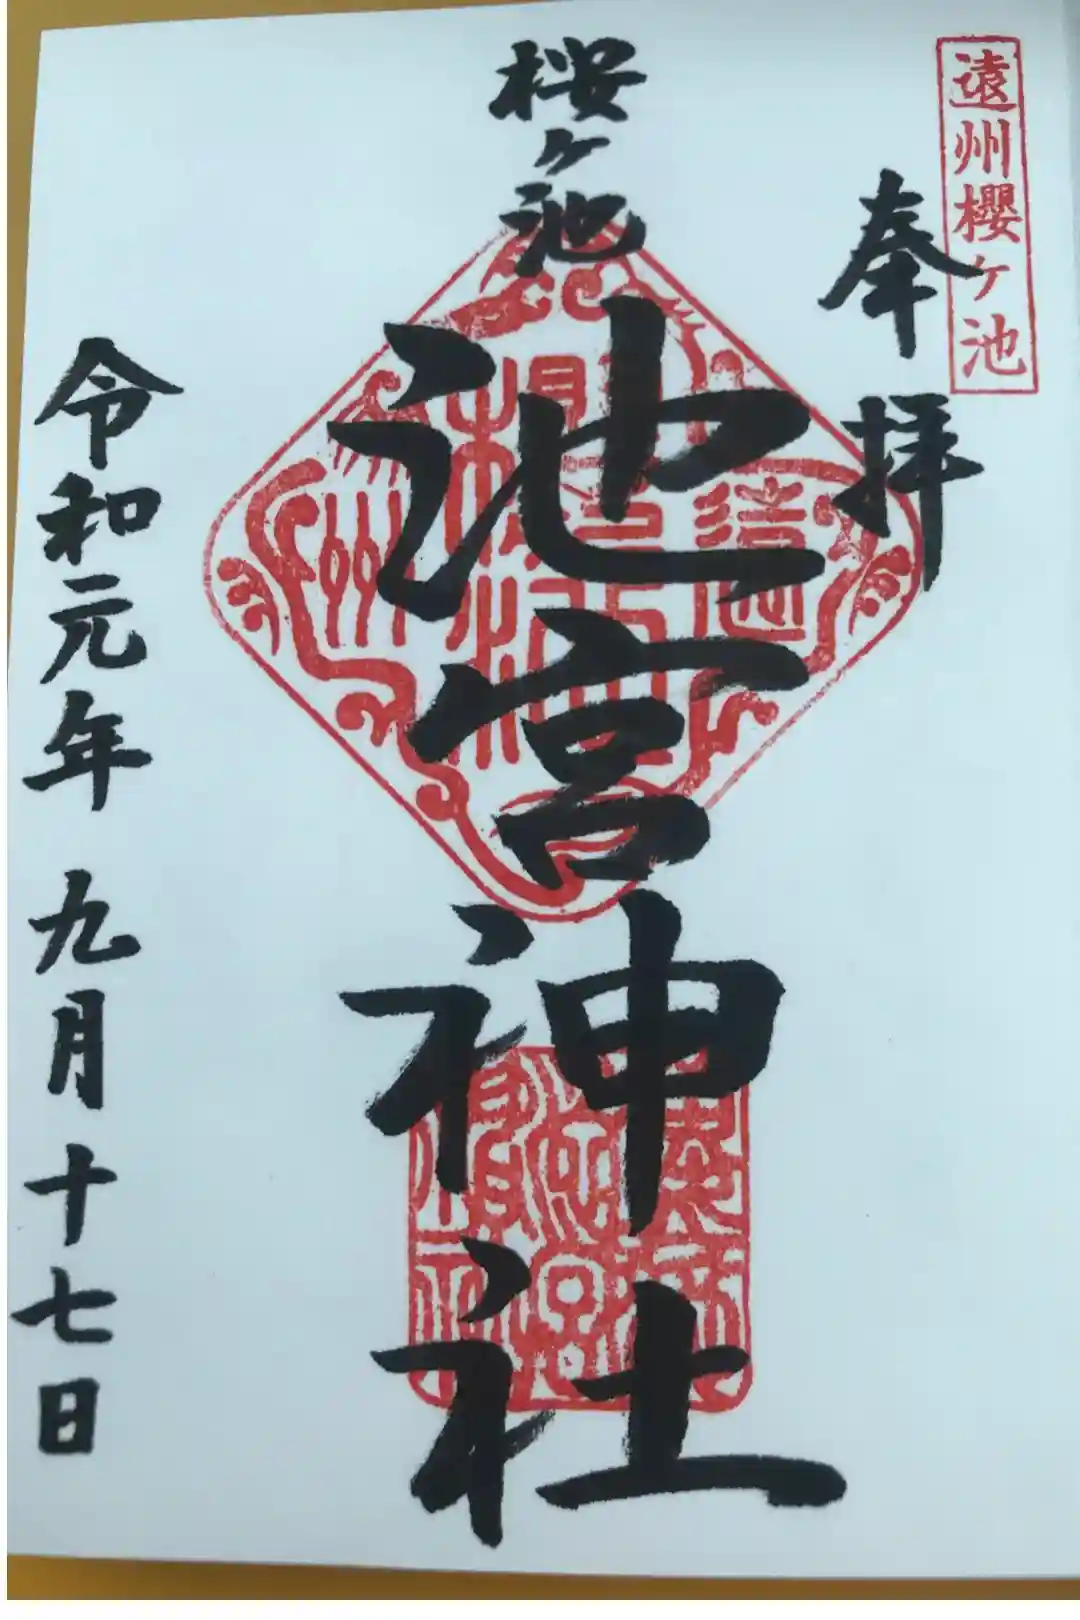 遠州櫻ケ池
奉拝
桜ケ池
池宮神社
令和元年九月十七日